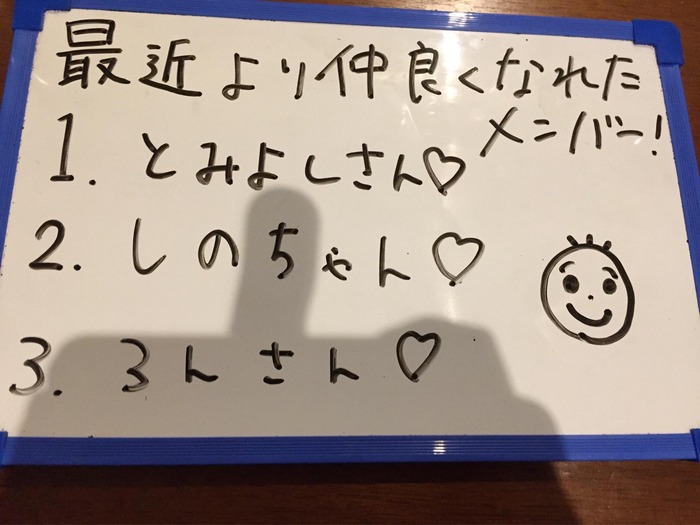 最近より仲良くなれた
メンバー!
1. とみよしさん♡
2. しのちゃん♡
3. ろんさん♡